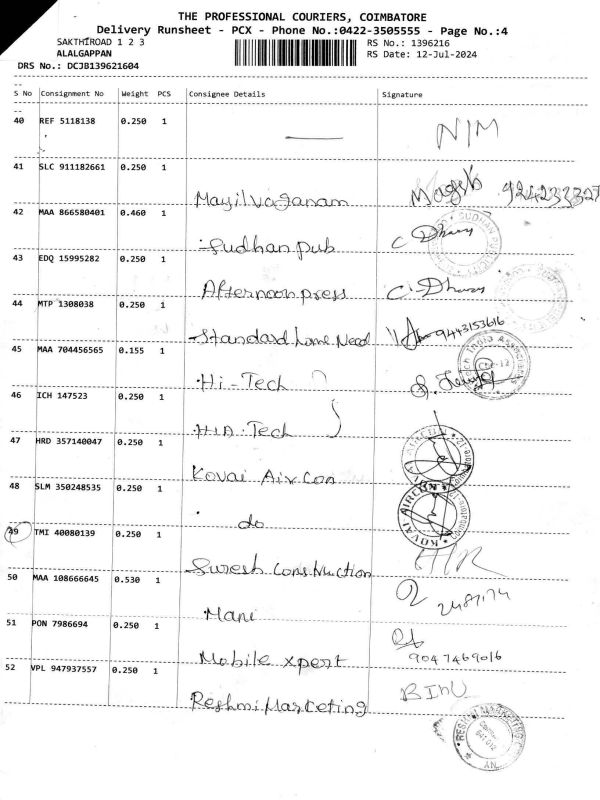 THE PROFESSIONAL COURIERS, COIMBATORE
Delivery Runsheet - PCX - Phone No.:0422-3505555 - Page No.:4
SAKTHIROAD 1 2 3
RS No.: 1396216
ALALGAPPAN
RS Date: 12-Jul-2024
DRS No.: DCJB139621604
S No Consignment No Weight PCS Consignee Details Signature
40 REF 5118138 0.250 1 NIM
41 SLC 911182661 0.250 1
Mayilvaganam 9242333327
42 MAA 866580401 0.460 1
Sudhan pub C. Dhary
43 EDQ 15995282 0.250 1
Afternoon press C. Dhary
44 MTP 1308038 0.250 1
Standard home Need 9443153616
45 MAA 704456565 0.155 1
Hi-Tech
46 ICH 147523 0.250 1
Hia Tech
47 HRD 357140047 0.250 1
Kovai Aircon
48 SLM 350248535 0.250 1
do KOVAI AIRCON
49 TMI 40080139 0.250 1
Suresh Construction
50 MAA 108666645 0.530 1
Mani
51 PON 7986694 0.250 1
Mobile xpert 9047469016
52 VPL 947937557 0.250 1
Reshmi Marketing BINU